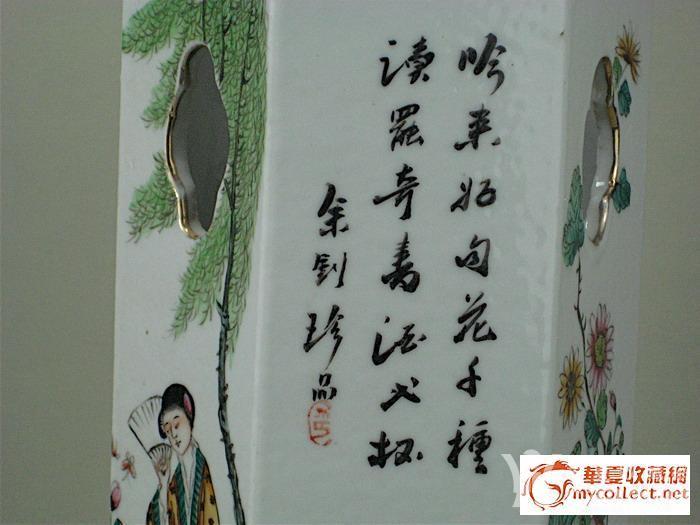 吟來好句花千種
讀罷奇書酒杯
余釗珍品
華夏收藏網
mycollect.net